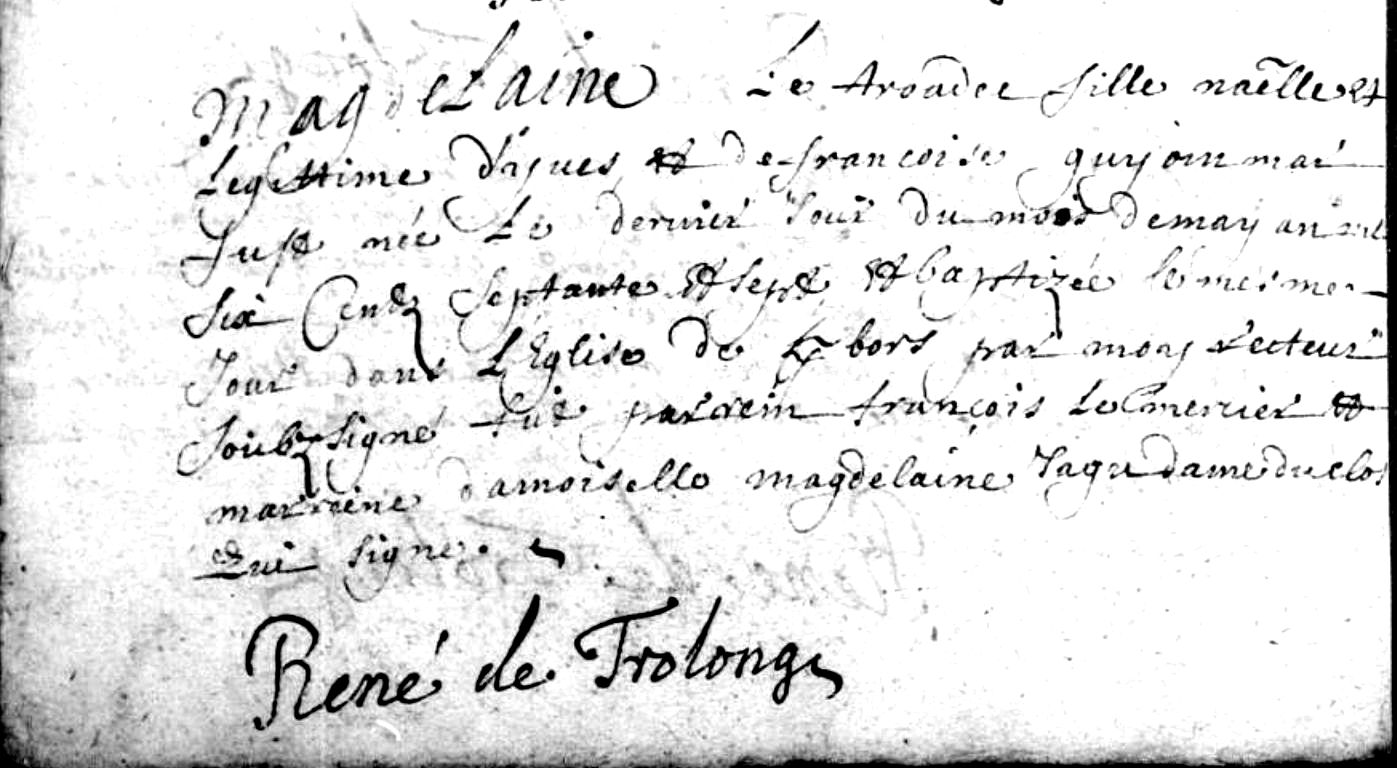 Magdelaine Le troadec fille naêlle et
Legittime d'yves et de francoise guyomar
fust née Le dernier Jour du mois de may an mil
six Centz septante et sept et baptizée le mesme
Jour dans L'Eglise de bors par moy Recteur
soubzsigné fut parrein françois Le mercier et
marreine damoiselle magdelaine Jagu dame du clos
Qui signe.
René de Trolong